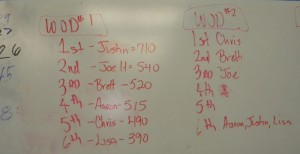 WOD #1
1st - Justin = 710
2nd - Joe H = 540
3RD - Brett - 520
4th - Aaron - 515
5th - Chris - 490
6th - Lisa - 390
WOD #2
1st Chris
2nd Brett
3RD Joe
4th
5th
6th Aaron, Justin, Lisa